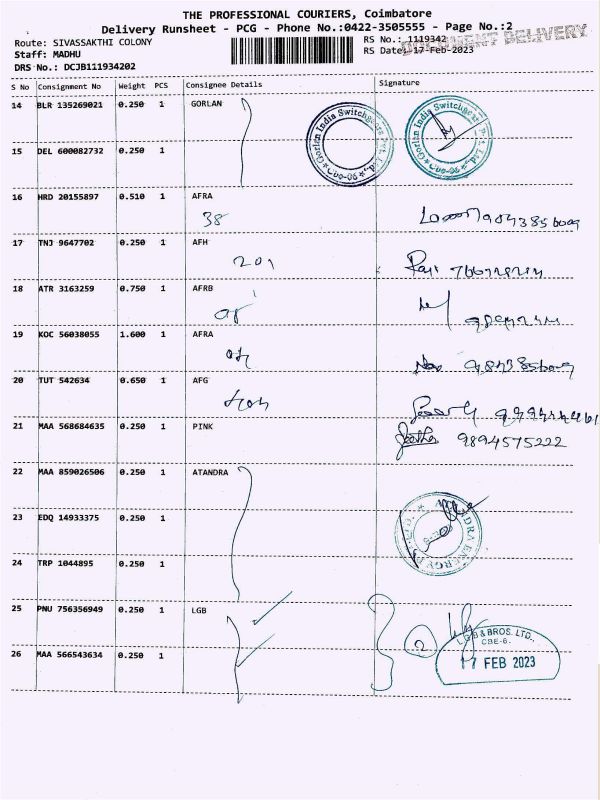 THE PROFESSIONAL COURIERS, Coimbatore
Delivery Runsheet - PCG - Phone No.:0422-3505555 - Page No.:2
Route: SIVASSAKTHI COLONY
RS No.: 1119342
DOCUMENT DELIVERY
Staff: MADHU
RS Date: 17-Feb-2023
DRS No.: DCJB111934202
S No Consignment No Weight PCS Consignee Details Signature
14 BLR 135269021 0.250 1 GORLAN
Gorlan India Switchgears Pvt. Ltd. Cbe-06
Gorlan India Switchgears Pvt. Ltd. Cbe-06
15 DEL 600082732 0.250 1
16 HRD 20155897 0.510 1 AFRA
38
17 TNJ 9647702 0.250 1 AFH
201
18 ATR 3163259 0.750 1 AFRB
19 KOC 56038055 1.600 1 AFRA
20 TUT 542634 0.650 1 AFG
21 MAA 568684635 0.250 1 PINK
Geetha 9894575222
22 MAA 859026506 0.250 1 ATANDRA
23 EDQ 14933375 0.250 1
ATANDRA ENERGY
24 TRP 1044895 0.250 1
25 PNU 756356949 0.250 1 LGB
2
L.G.B & BROS. LTD.,
CBE-6.
17 FEB 2023
26 MAA 566543634 0.250 1